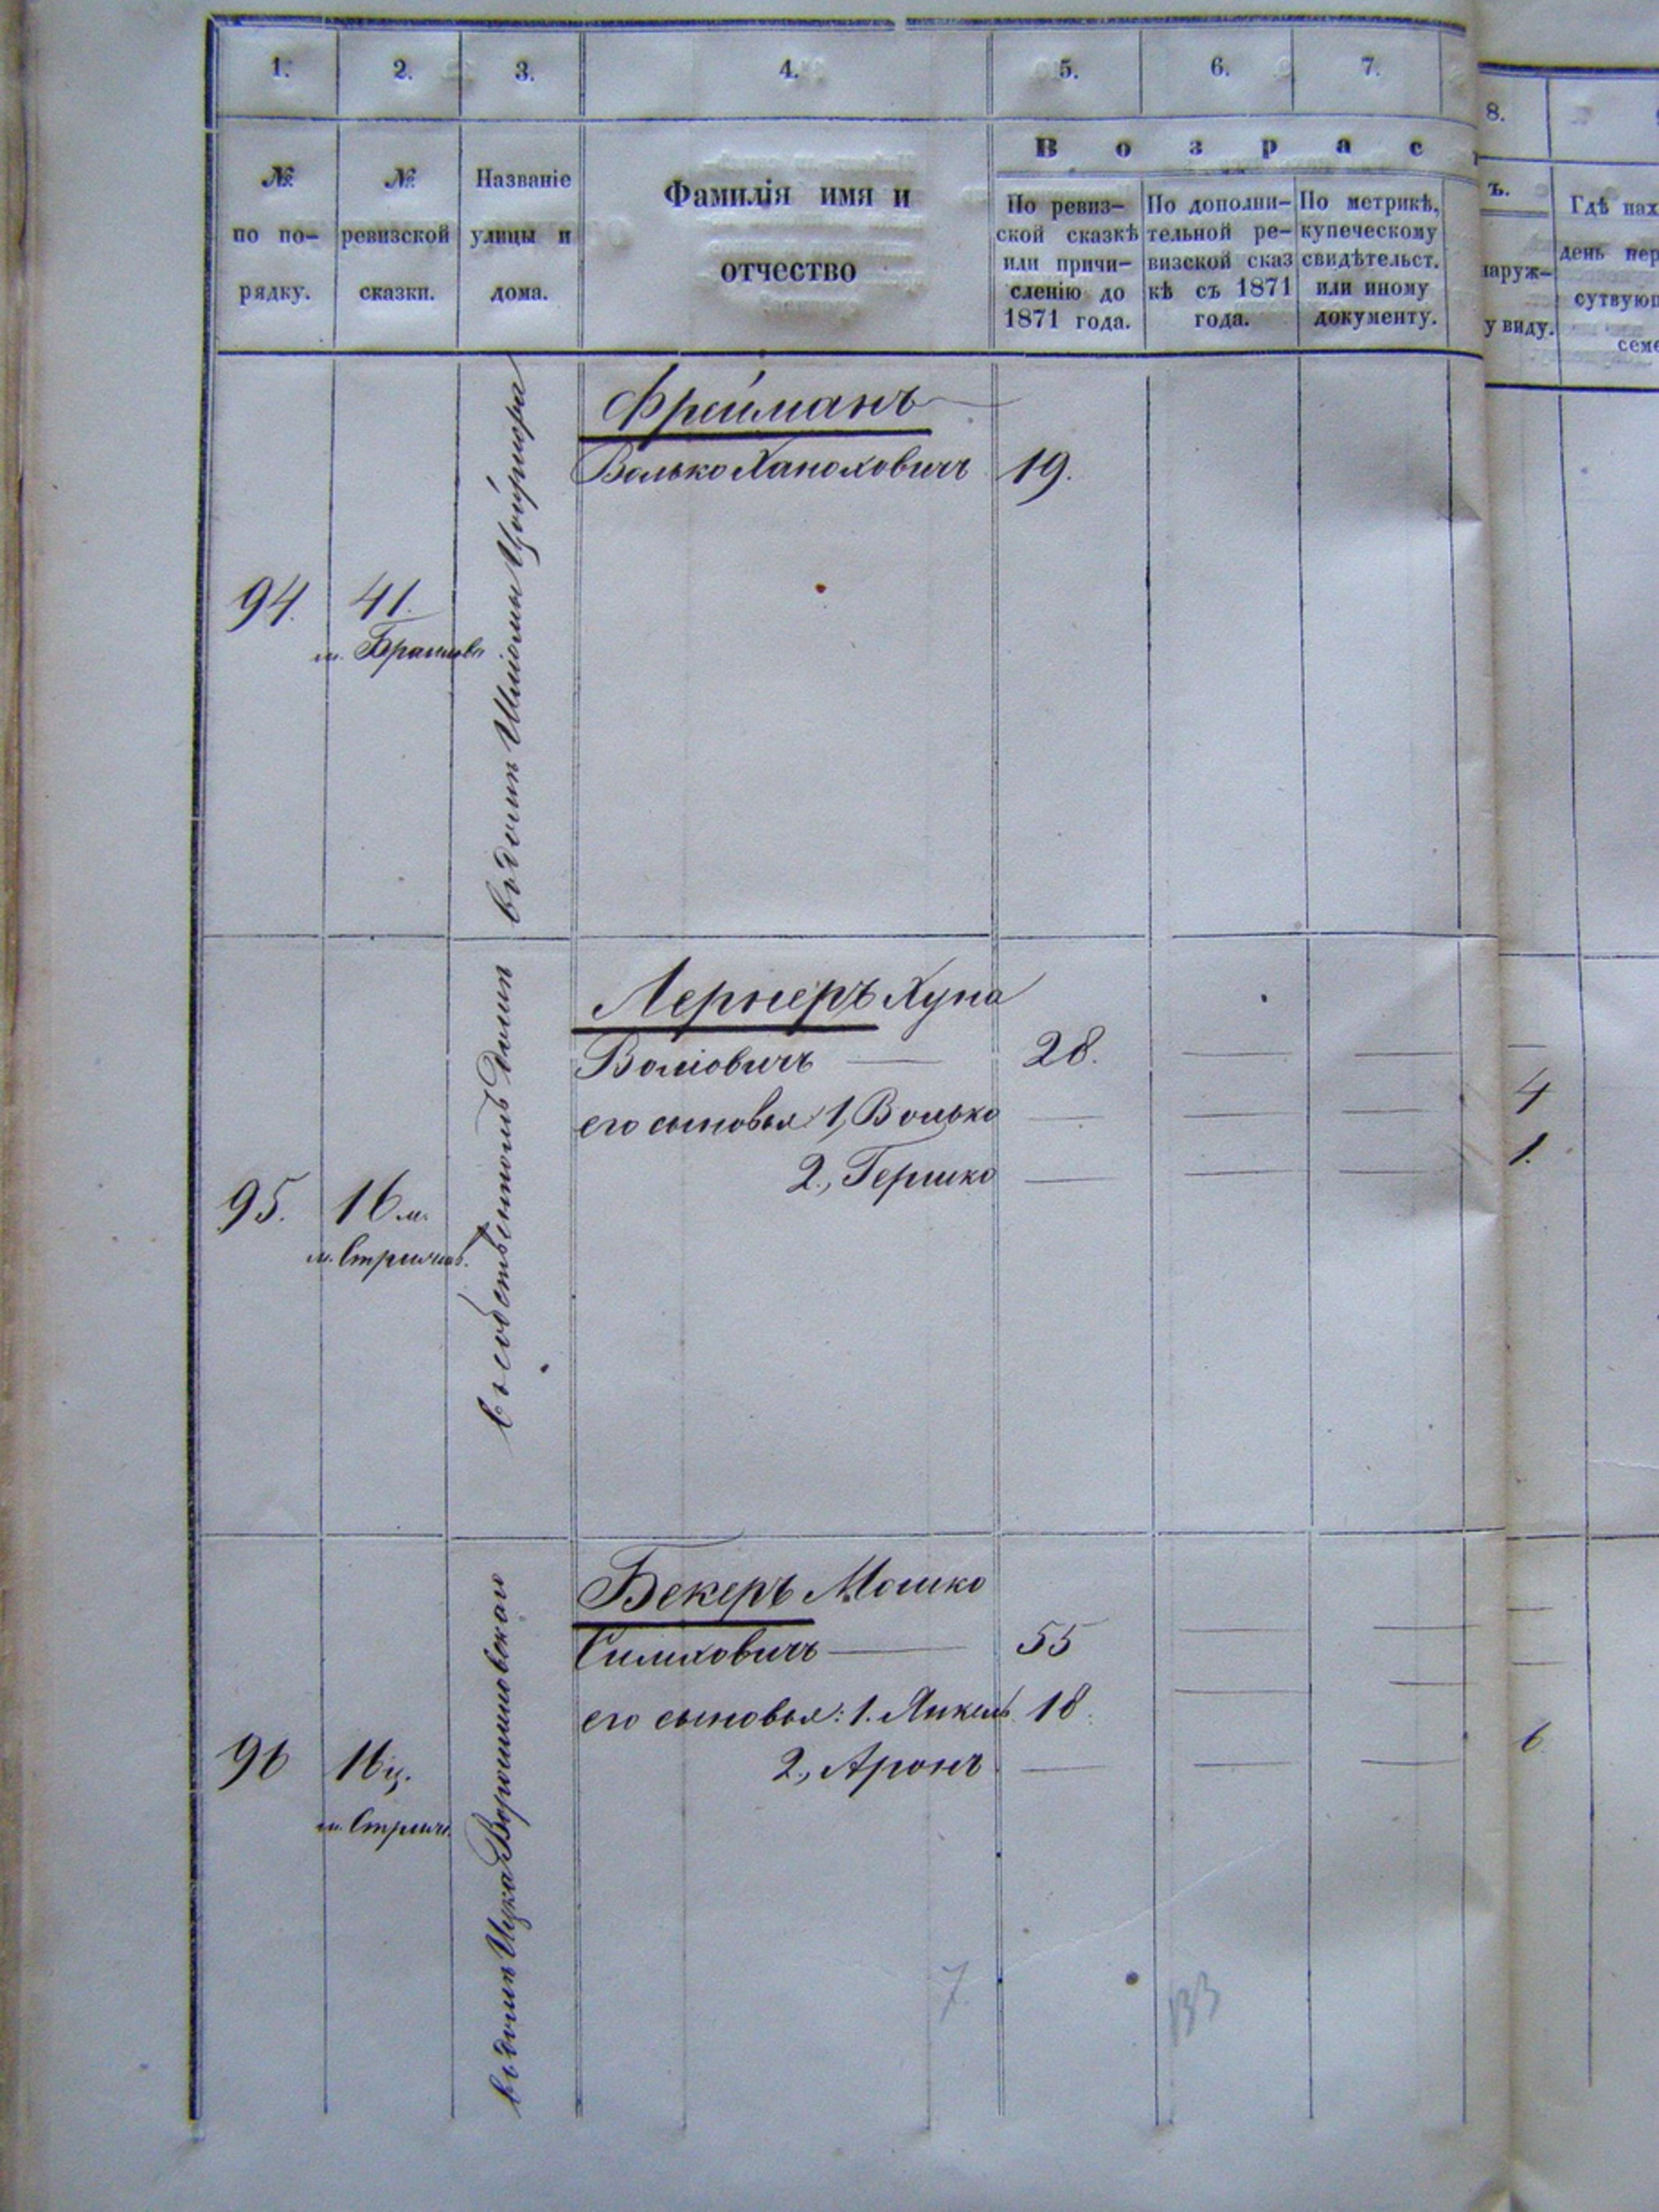 1. 2. 3. 4. 5. 6. 7.
8.
№ по по-рядку.
№ ревизской сказки.
Названіе улицы и дома.
Фамилія имя и
отчество
В о з р а с
По ревиз-
ской сказкѣ
или причи-
сленію до
1871 года.
По дополни-
тельной ре-
визской сказ
кѣ съ 1871
года.
По метрикѣ,
купеческому
свидѣтельст.
или иному
документу.
ъ.
наруж-
у виду.
Гдѣ нах
день пер
сутвующ
семе
94. 41.
м. Браилов
въ домѣ
Фрейманъ
Волько Ханохович 19.
95. 16 м.
м. Стрижав.
въ собственномъ домѣ
Лернеръ Хуна
Волiовичъ 28.
его сыновья 1, Волько 4
2., Гершко 1.
96 16 ц.
м. Стриж.
въ домѣ Ицка Ворошиловскаго
Бекеръ Мошко
Симховичъ 55
его сыновья: 1. Янкель 18
2., Аронъ 6
7
133